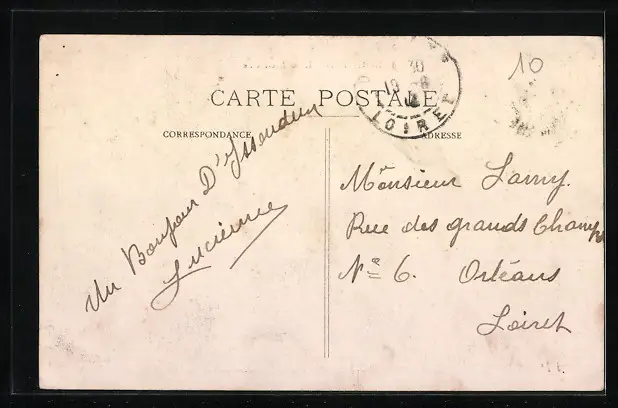 10
30
19
LOIRET
CARTE POSTALE
CORRESPONDANCE
ADRESSE
Un Bonjour D'Issoudun
Lucienne
Monsieur Lamy.
Rue des grands Champs
No 6. Orléans
Loiret